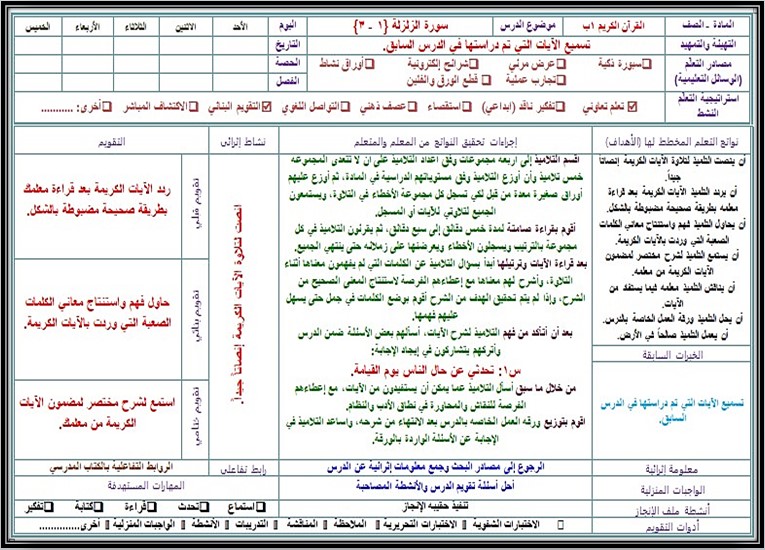 المادة ـ الصف
القرآن الكريم ١ب
موضوع الدرس
سورة الزلزلة {١ - ٣}
اليوم
الأحد
الاثنين
الثلاثاء
الأربعاء
الخميس
التهيئة والتمهيد
تسميع الآيات التي تم دراستها في الدرس السابق.
التاريخ
مصادر التعلم
(الوسائل التعليمية)
□سبورة ذكية □عرض مرئي □شرائح إلكترونية □أوراق نشاط
□تجارب عملية □قطع الورق والفلين
الحصة
الفصل
استراتيجية التعلم
النشط
☑تعلم تعاوني □تفكير ناقد (ابداعي) □استقصاء □عصف ذهني □التواصل اللغوي ☑التقويم البنائي □الاكتشاف المباشر □أخرى: ...........
نواتج التعلم المخطط لها (الأهداف)
إجراءات تحقيق النواتج من المعلم والمتعلم
نشاط إثرائي
التقويم
أن ينصت التلميذ لتلاوة الآيات الكريمة إنصاتاً
جيداً.
أن يردد التلميذ الآيات الكريمة بعد قراءة
معلمه بطريقة صحيحة مضبوطة بالشكل.
أن يحاول التلميذ فهم واستنتاج معاني الكلمات
الصعبة التي وردت بالآيات الكريمة.
أن يستمع التلميذ لشرح مختصر لمضمون
الآيات الكريمة من معلمه.
أن يناقش التلميذ معلمه فيما يستفاد من
الآيات.
أن يحل التلميذ ورقة العمل الخاصة بالدرس.
أن يعمل التلميذ صالحاً في الأرض.
الخبرات السابقة
تسميع الآيات التي تم دراستها في الدرس
السابق.
اقسم التلاميذ إلى اربعه مجموعات وفق اعداد التلاميذ على ان لا تتعدى المجموعه
خمس تلاميذ وأن أوزع التلاميذ وفق مستوياتهم الدراسية في المادة، ثم أوزع عليهم
أوراق صغيرة معدة من قبل لكي تسجل كل مجموعة الأخطاء في التلاوة، ويستمعون
الجميع لتلاوتي للآيات أو المسجل.
أقوم بقراءة صامتة لمدة خمس دقائق إلى سبع دقائق، ثم يقرئون التلاميذ في كل
مجموعة بالترتيب ويسجلون الأخطاء ويعرضنها على زملائه حتى ينتهي الجميع.
بعد قراءة الآيات وترتيلها أبدأ بسؤال التلاميذ عن الكلمات التي لم يفهمون معناها أثناء
التلاوة، وأشرح لهم معناها مع إعطاءهم الفرصة لاستنتاج المعنى الصحيح من
الشرح، وإذا لم يتم تحقيق الهدف من الشرح أقوم بوضع الكلمات في جمل حتى يسهل
عليهم فهمها.
بعد أن أتأكد من فهم التلاميذ لشرح الآيات، أسألهم بعض الأسئلة ضمن الدرس
وأتركهم يتشاركون في إيجاد الإجابة:
س١: تحدثي عن حال الناس يوم القيامة.
من خلال ما سبق أسأل التلاميذ عما يمكن أن يستفيدون من الآيات، مع إعطاءهم
الفرصة للنقاش والمحاورة في نطاق الأدب والنظام.
اقوم بتوزيع ورقه العمل الخاصه بالدرس بعد الانتهاء من شرحه، واساعد التلاميذ في
الإجابة عن الأسئلة الواردة بالورقة.
انصت لتلاوة الآيات الكريمة إنصاتاً جيداً.
تقويم قبلي
ردد الآيات الكريمة بعد قراءة معلمك
بطريقة صحيحة مضبوطة بالشكل.
تقويم بنائي
حاول فهم واستنتاج معاني الكلمات
الصعبة التي وردت بالآيات الكريمة.
تقويم ختامي
استمع لشرح مختصر لمضمون الآيات
الكريمة من معلمك.
معلومة إثرائية
الرجوع إلى مصادر البحث وجمع معلومات إثرائية عن الدرس
رابط تفاعلي
الروابط التفاعلية بالكتاب المدرسي
الواجبات المنزلية
أحل أسئلة تقويم الدرس والأنشطة المصاحبة
المهارات المستهدفة
أنشطة ملف الإنجاز
تنفيذ حقيبه الإنجاز
□ استماع □ تحدث □ قراءة □ كتابة □ تفكير
أدوات التقويم
□ الاختبارات الشفوية □ الاختبارات التحريرية □ الملاحظة □ المناقشة □ التدريبات □ الأنشطة □ الواجبات المنزلية □ أخرى...............